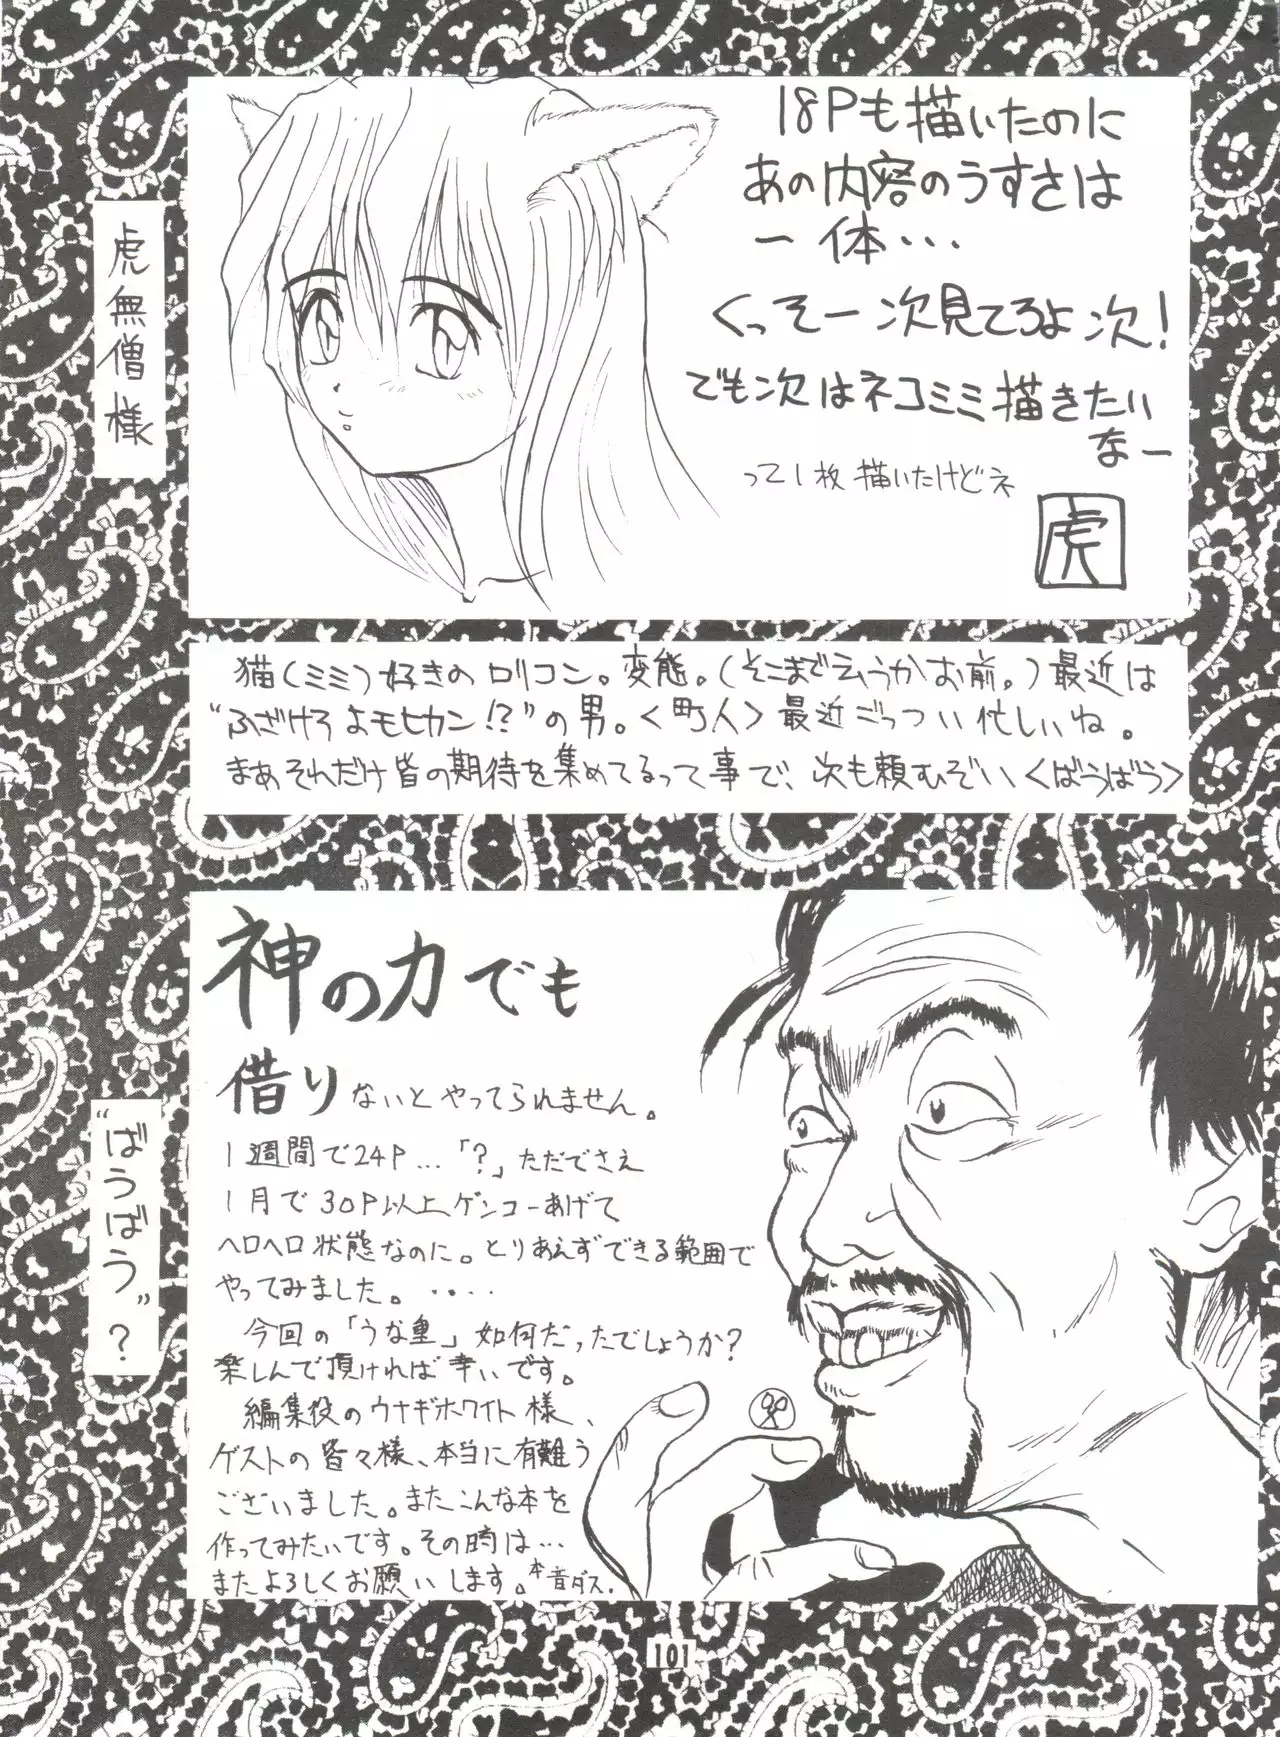 虎無僧様
18Pも描いたのに
あの内容のうすさは
一体・・・
くっそー次見てろよ次!
でも次はネコミミ描きたい
なー
って1枚描いたけどネ
虎
猫(ミミ)好きのロリコン。変態。(そこまでいうかお前。)最近は
“ふざけろよモヒカン!?”の男。<町人>最近ごっつい忙しいね。
まあそれだけ皆の期待を集めてるって事で、次も頼むぞい<ばうばう>
“ばうばう”?
神の力でも
借りないとやってられません。
1週間で24P…「?」ただでさえ
1月で30P以上ゲンコーあげて
ヘロヘロ状態なのに。とりあえずできる範囲で
やってみました。・・・・
今回の「うな重」如何だったでしょうか?
楽しんで頂ければ幸いです。
編集役のウナギホワイト様、
ゲストの皆々様、本当に有難う
ございました。またこんな本を
作ってみたいです。その時は…
またよろしくお願いします。本音ダス.
101